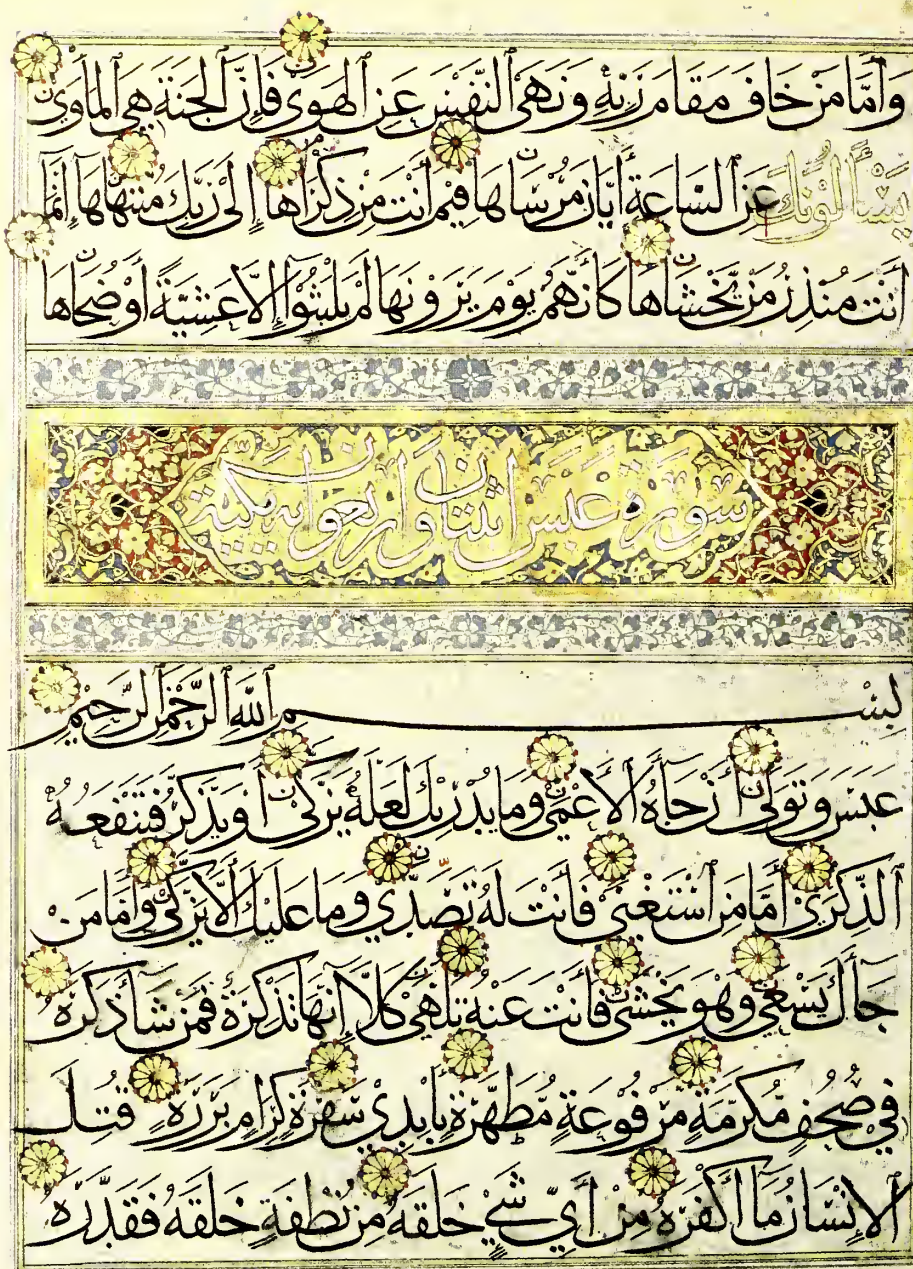 وَأَمَّا مَنْ خَافَ مَقَامَ رَبِّهِ وَنَهَى ٱلنَّفْسَ عَنِ ٱلْهَوَى فَإِنَّ ٱلْجَنَّةَ هِيَ ٱلْمَأْوَى
يَسْأَلُونَكَ عَنِ ٱلسَّاعَةِ أَيَّانَ مُرْسَاهَا فِيمَ أَنْتَ مِنْ ذِكْرَاهَا إِلَى رَبِّكَ مُنْتَهَاهَا إِنَّمَا
أَنْتَ مُنْذِرُ مَنْ يَخْشَاهَا كَأَنَّهُمْ يَوْمَ يَرَوْنَهَا لَمْ يَلْبَثُوا إِلَّا عَشِيَّةً أَوْ ضُحَاهَا
سورة عبس اثنتان واربعون اية مكية
بِسْمِ ٱللَّهِ ٱلرَّحْمَنِ ٱلرَّحِيمِ
عَبَسَ وَتَوَلَّى أَنْ جَآءَهُ ٱلْأَعْمَى وَمَا يُدْرِيكَ لَعَلَّهُ يَزَّكَّى أَوْ يَذَّكَّرُ فَتَنْفَعَهُ
ٱلذِّكْرَى أَمَّا مَنِ ٱسْتَغْنَى فَأَنْتَ لَهُ تَصَدَّى وَمَا عَلَيْكَ أَلَّا يَزَّكَّى وَأَمَّا مَنْ
جَآءَكَ يَسْعَى وَهُوَ يَخْشَى فَأَنْتَ عَنْهُ تَلَهَّى كَلَّا إِنَّهَا تَذْكِرَةٌ فَمَنْ شَآءَ ذَكَرَهُ
فِي صُحُفٍ مُكَرَّمَةٍ مَرْفُوعَةٍ مُطَهَّرَةٍ بِأَيْدِي سَفَرَةٍ كِرَامٍ بَرَرَةٍ قُتِلَ
ٱلْإِنْسَانُ مَآ أَكْفَرَهُ مِنْ أَيِّ شَيْءٍ خَلَقَهُ مِنْ نُطْفَةٍ خَلَقَهُ فَقَدَّرَهُ